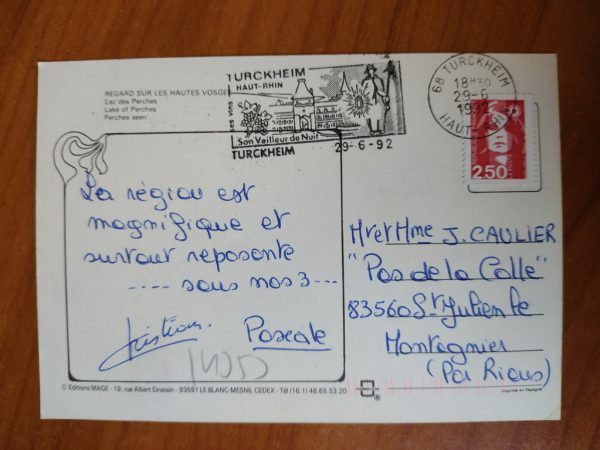 REGARD SUR LES HAUTES VOSGES
Lac des Perches
Lake of Perches
Perches seen
TURCKHEIM
HAUT-RHIN
ses vins
Son Veilleur de Nuit
TURCKHEIM
29-6-92
68 TURCKHEIM
18H30
29-6
1992
HAUT-RHIN
2,50
La région est
magnifique et
surtout reposante
.... sans nos 3...
Pascale
Mr et Mme J. CAULIER
"Pas de la Colle"
83560 St Julien le
Montagnier
(Par Rians)
© Editions MAGE - 19, rue Albert Einstein - 93591 LE BLANC-MESNIL CEDEX - Tél (16.1) 48.65.53.20
Imprimé en Espagne